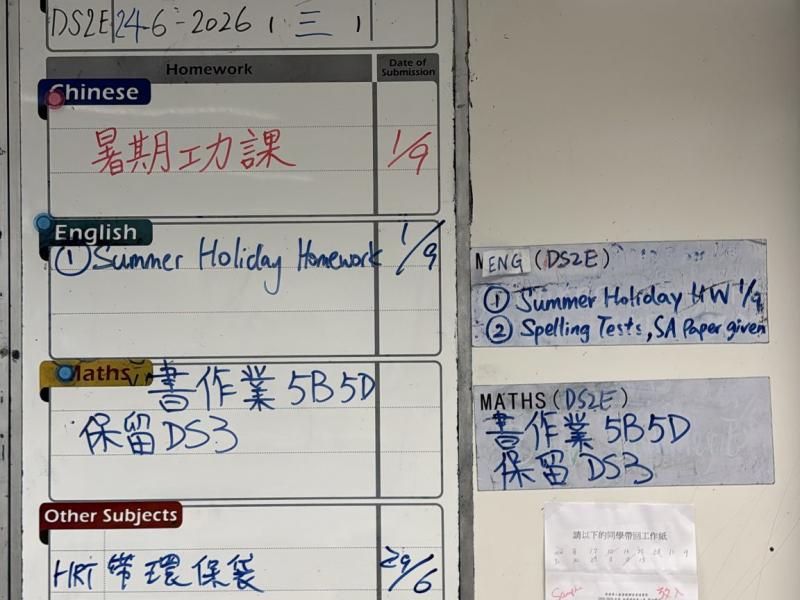 DS2E 24-6-2026 ( 三 )
Homework Date of Submission
Chinese
暑期工力課 1/9
English
① Summer Holiday Homework 1/9
Maths 書作業 5B5D
保留 DS3
Other Subjects
HRT 帶環保袋 29/6
ENG (DS2E)
① Summer Holiday HW 1/9
② Spelling Tests, SA Paper given
MATHS (DS2E)
書作業 5B5D
保留 DS3
請以下的同學帶回工作紙